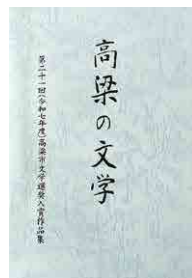 高梁の文学
第二十一回(令和七年度)高梁市文学選奨入賞作品集